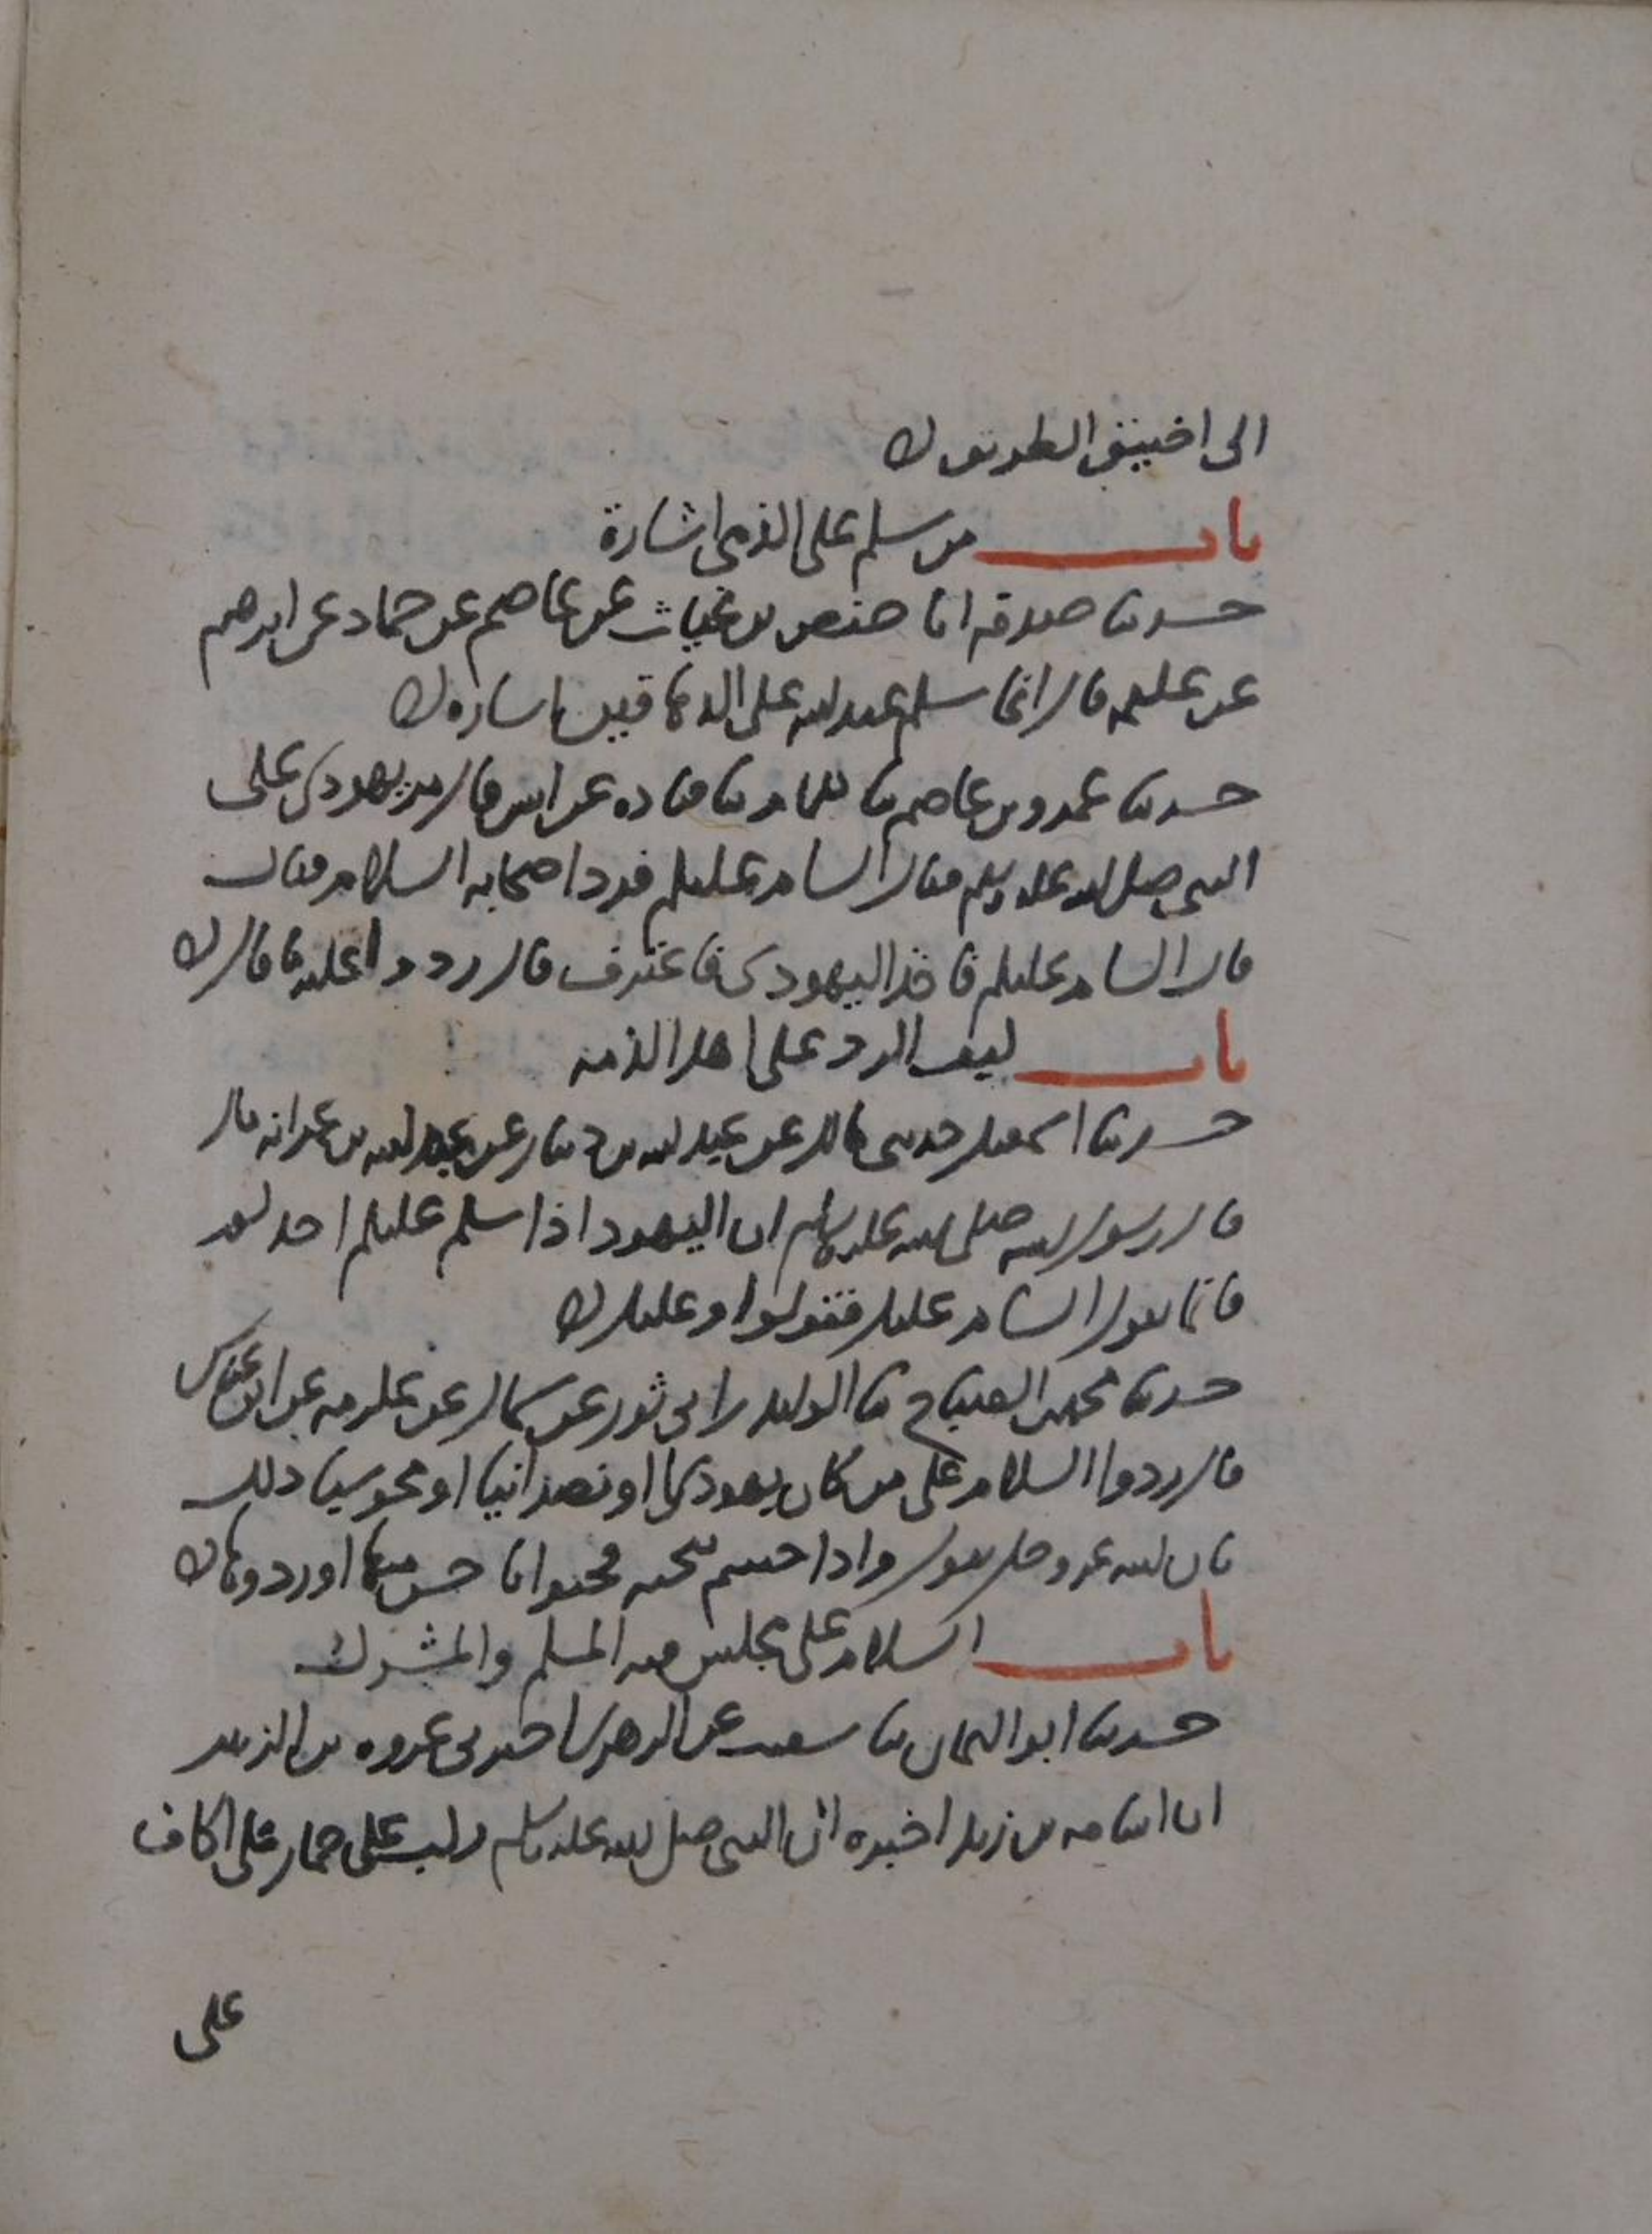 الى اضيق الطريق ه
باب من سلم على الذمى اشارة
حدثنا صدقة انا حفص بن غياث عن عاصم عن حماد عن ابرهيم
عن علقمة قال انما سلم عبد الله على الدهاقين اشارة ه
حدثنا عمرو بن عاصم ثنا همام ثنا قتادة عن انس قال مر يهودى على
النبى صلى الله عليه وسلم فقال السام عليكم فرد اصحابه السلام فقال
قال السام عليكم فاخذ اليهودى فاعترف قال ردوا عليه ما قال ه
باب كيف الرد على اهل الذمة
حدثنا اسمعيل حدثنى مالك عن عبد الله بن دينار عن عبد الله بن عمر انه قال
قال رسول الله صلى الله عليه وسلم ان اليهود اذا سلم عليكم احدهم
فانما يقول السام عليك فقولوا وعليك ه
حدثنا محمد بن الصباح ثنا الوليد بن ابى ثور عن سماك عن عكرمة عن ابن عباس
قال ردوا السلام على من كان يهوديا او نصرانيا او مجوسيا ذلك
بان الله عز وجل يقول واذا حييتم بتحية فحيوا باحسن منها او ردوها ه
باب السلام على مجلس فيه المسلم والمشرك
حدثنا ابو اليمان ثنا شعيب عن الزهرى اخبرنى عروة بن الزبير
ان اسامة بن زيد اخبره ان النبى صلى الله عليه وسلم ركب على حمار على اكاف
على